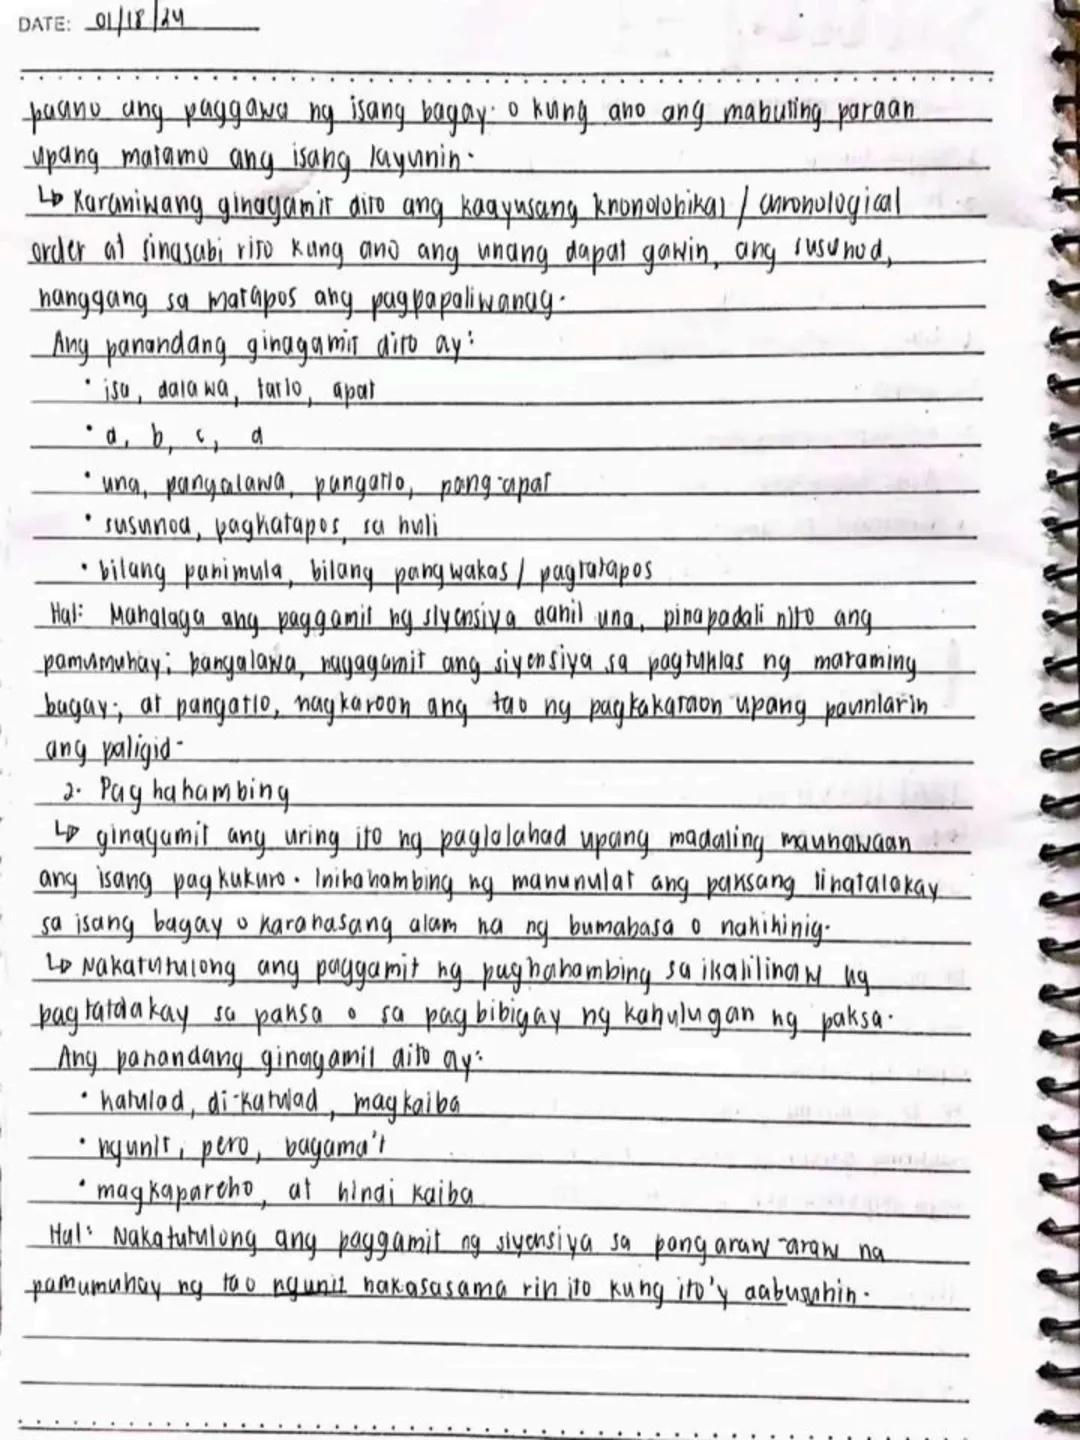 DATE: 01/18/24
paano ang paggawa ng isang bagay. o kung ano ang mabuting paraan
upang matamo ang isang layunin.
↳ Karaniwang ginagamit dito ang kaayusang kronolohikal / chronological
order at sinasabi rito kung ano ang unang dapat gawin, ang susunod,
hanggang sa matapos ang pagpapaliwanag.
Ang panandang ginagamit dito ay:
• isa, dalawa, tatlo, apat
• a, b, c, d
• una, pangalawa, pangatlo, pang-apat
• susunod, pagkatapos, sa huli
• bilang panimula, bilang pangwakas / pagtatapos
Hal: Mahalaga ang paggamit ng siyensiya dahil una, pinapadali nito ang
pamumuhay; pangalawa, nagagamit ang siyensiya sa pagtuklas ng maraming
bagay; at pangatlo, nagkaroon ang tao ng pagkakataon upang paunlarin
ang paligid.
2. Paghahambing
↳ ginagamit ang uring ito ng paglalahad upang madaling maunawaan
ang isang pagkukuro. Inihahambing ng manunulat ang paksang tinatalakay
sa isang bagay o karanasang alam na ng bumabasa o nakikinig.
↳ Nakatutulong ang paggamit ng paghahambing sa ikalilinaw ng
pagtatalakay sa paksa o sa pagbibigay ng kahulugan ng paksa.
Ang panandang ginagamit dito ay:
• katulad, di-katulad, magkaiba
• ngunit, pero, bagama't
• magkapareho, at hindi kaiba
Hal: Nakatutulong ang paggamit ng siyensiya sa pang araw-araw na
pamumuhay ng tao ngunit nakasasama rin ito kung ito'y aabusuhin.